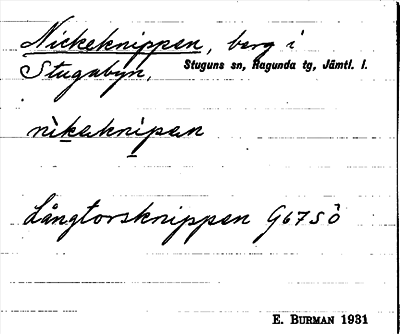 Nickeknippen, berg i
Stugubyn, Stuguns sn, Ragunda tg, Jämtl. l.
nìkeknipen
Långtorsknippen G67SÖ
E. BURMAN 1931